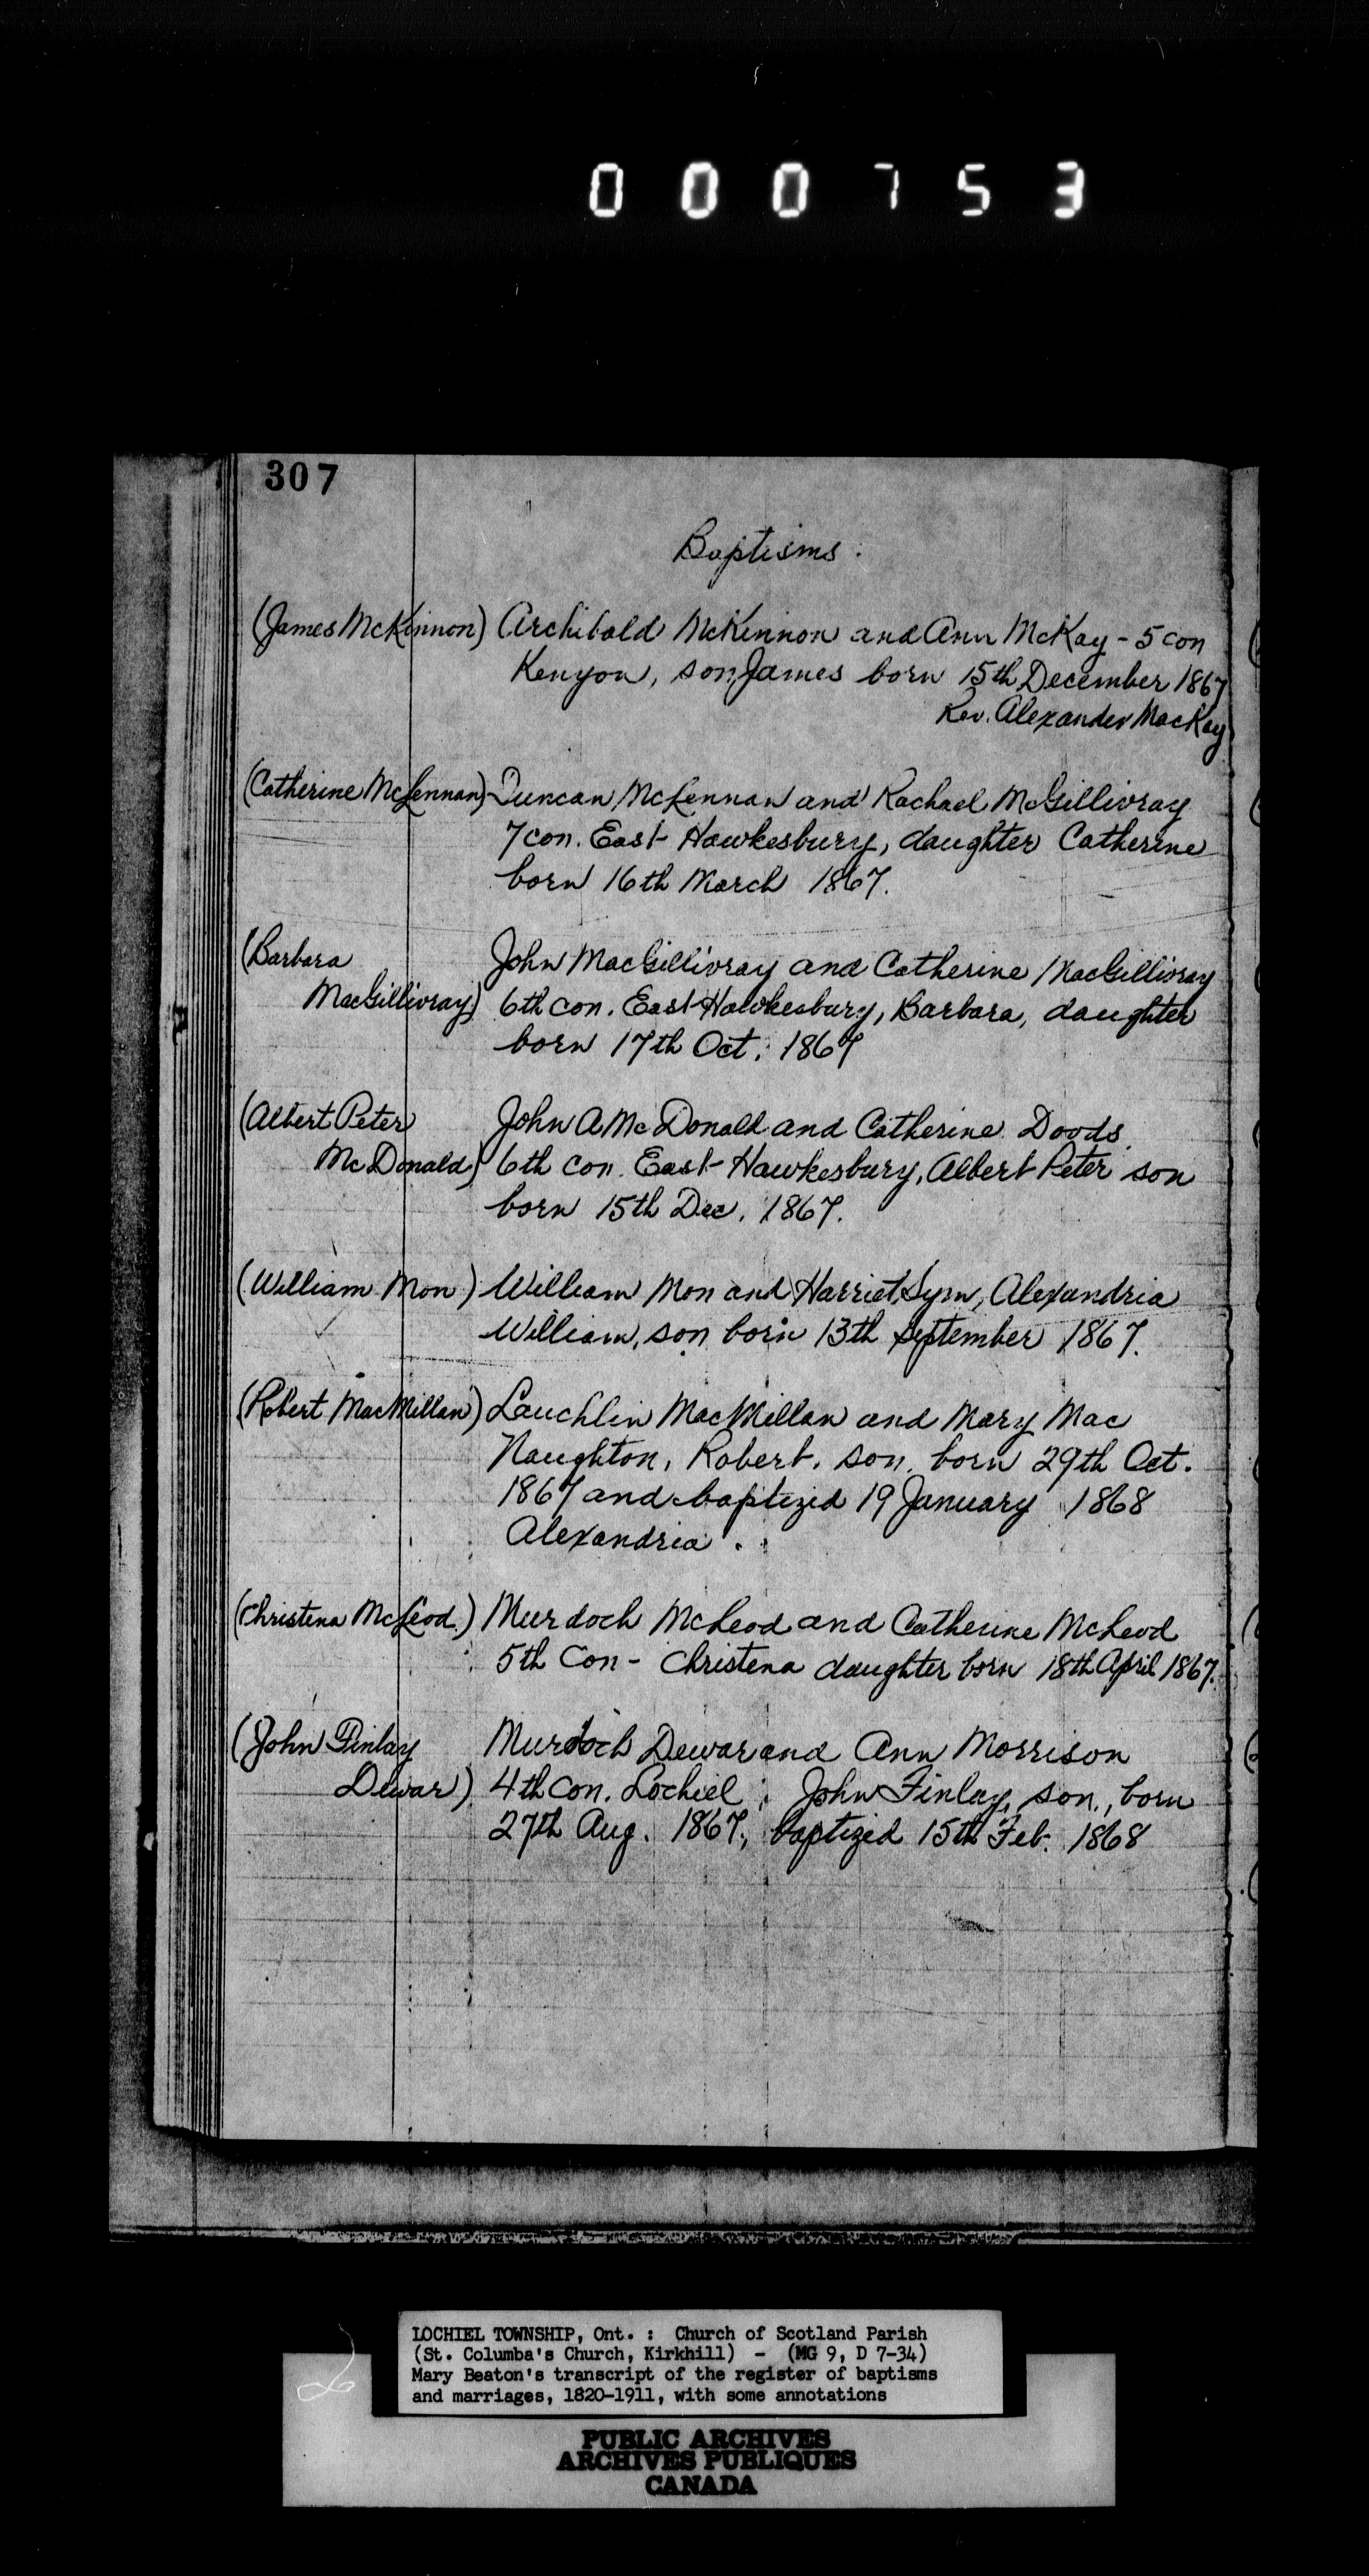 000753
307
Baptisms.
(James McKinnon) Archibald McKinnon and Ann McKay - 5 con
Kenyon, son, James born 15th December 1867
Rev. Alexander MacKay
(Catherine McLennan) Duncan McLennan and Rachael McGillivray
7 con. East Hawkesbury, daughter Catherine
born 16th March 1867.
(Barbara John MacGillivray and Catherine MacGillivray
MacGillivray) 6th con. East Hawkesbury, Barbara, daughter
born 17th Oct. 1867
(Albert Peter John A McDonald and Catherine Dodds
McDonald) 6th con. East Hawkesbury, Albert Peter son
born 15th Dec. 1867.
(William Mon) William Mon and Harriet Sym, Alexandria
William, son born 13th September 1867.
(Robert MacMillan) Lauchlin MacMillan and Mary Mac
Naughton, Robert, son, born 29th Oct.
1867 and baptized 19 January 1868
Alexandria.
(Christena McLeod) Murdoch McLeod and Catherine McLeod
5th Con - Christena daughter born 18th April 1867.
(John Finlay Murdoch Dewar and Ann Morrison
Dewar) 4th con. Lochiel; John Finlay, son, born
27th Aug. 1867, baptized 15th Feb. 1868
LOCHIEL TOWNSHIP, Ont. : Church of Scotland Parish
(St. Columba's Church, Kirkhill) - (MG 9, D 7-34)
Mary Beaton's transcript of the register of baptisms
and marriages, 1820-1911, with some annotations
PUBLIC ARCHIVES
ARCHIVES PUBLIQUES
CANADA